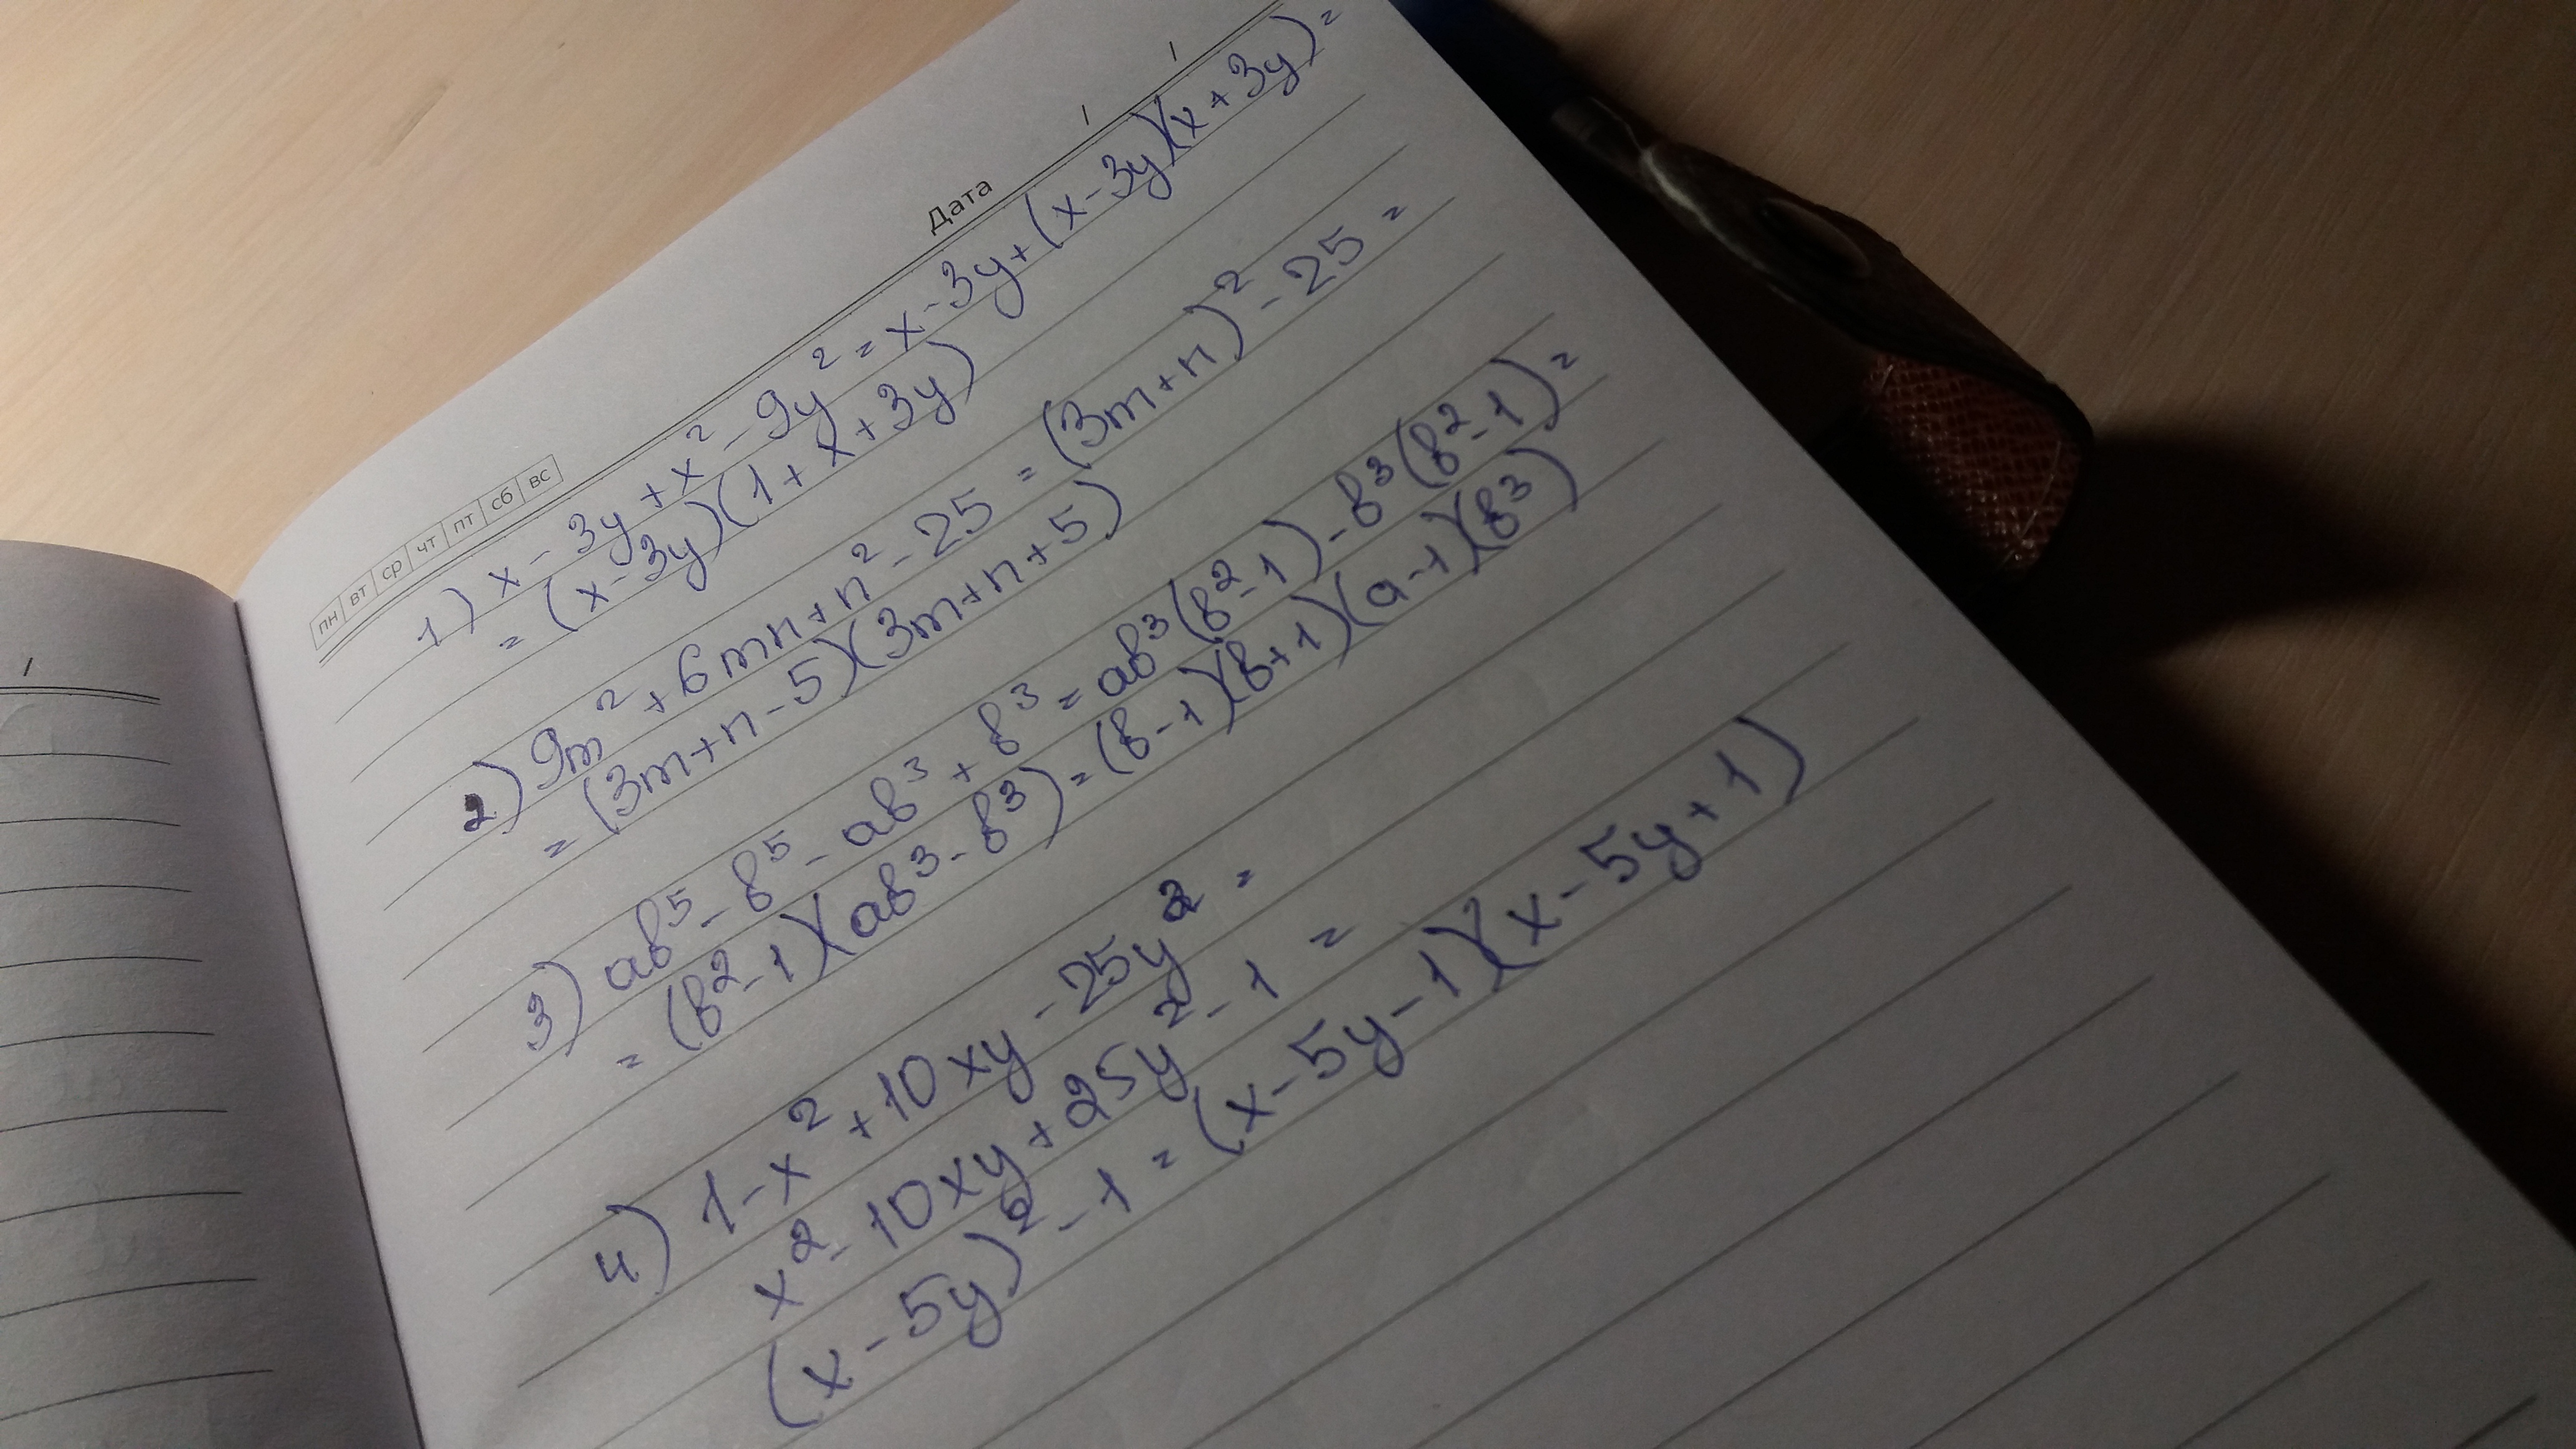 Дата / /
пн вт ср чт пт сб вс
1) x - 3y + x² - 9y² = x - 3y + (x - 3y)(x + 3y) =
= (x - 3y)(1 + x + 3y)
2) 9m² + 6mn + n² - 25 = (3m + n)² - 25 =
= (3m + n - 5)(3m + n + 5)
3) ab⁵ - b⁵ - ab³ + b³ = ab³(b² - 1) - b³(b² - 1) =
= (b² - 1)(ab³ - b³) = (b - 1)(b + 1)(a - 1)(b³)
4) 1 - x² + 10xy - 25y² =
x² - 10xy + 25y² - 1 =
(x - 5y)² - 1 = (x - 5y - 1)(x - 5y + 1)
/